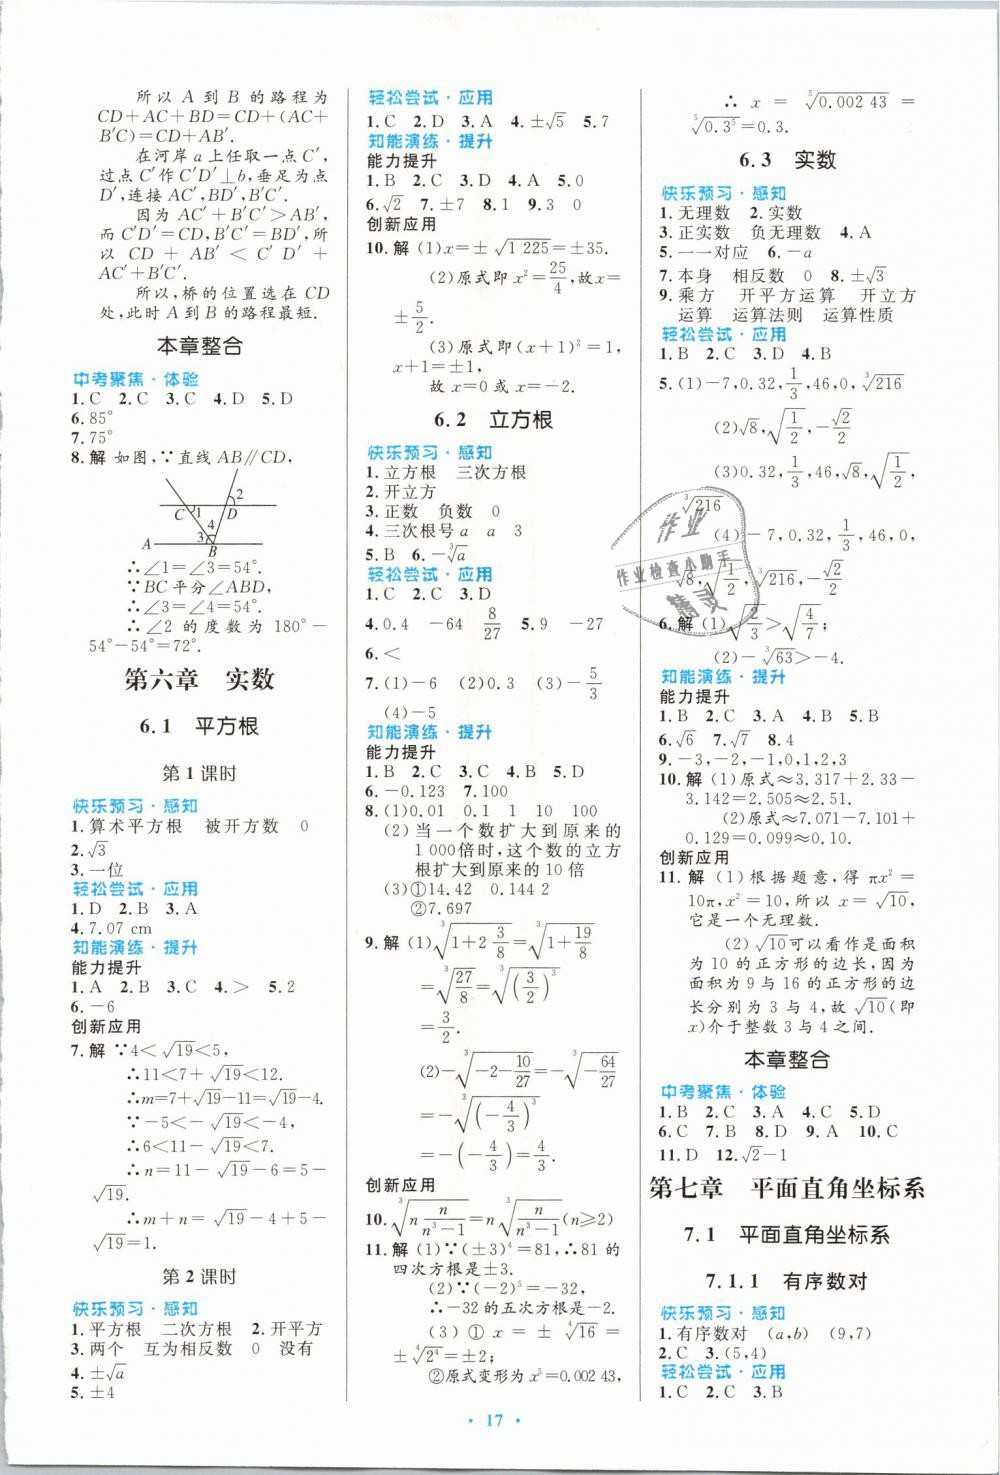 所以 A 到 B 的路程为
CD+AC+BD=CD+(AC+
B′C)=CD+AB′.
在河岸 a 上任取一点 C′,
过点 C′作 C′D′⊥b,垂足为点
D′,连接 AC′,BD′,B′C′.
因为 AC′+B′C′>AB′,
而 C′D′=CD,B′C′=BD′,所
以 CD + AB′ < C′D′ +
AC′+B′C′.
所以,桥的位置选在 CD
处,此时 A 到 B 的路程最短.
本章整合
中考聚焦·体验
1.C 2.C 3.C 4.D 5.D
6.85°
7.75°
8.解 如图,∵直线 AB∥CD,
2
C 1 D
4
3
A B
∴∠1=∠3=54°.
∵BC 平分∠ABD,
∴∠3=∠4=54°.
∴∠2 的度数为 180°−
54°−54°=72°.
第六章 实数
6.1 平方根
第 1 课时
快乐预习·感知
1.算术平方根 被开方数 0
2.√3
3.一位
轻松尝试·应用
1.D 2.B 3.A
4.7.07 cm
知能演练·提升
能力提升
1.A 2.B 3.C 4.> 5.2
6.−6
创新应用
7.解 ∵4<√19<5,
∴11<7+√19<12.
∴m=7+√19−11=√19−4.
∵−5<−√19<−4,
∴6<11−√19<7.
∴n=11−√19−6=5−
√19.
∴m+n=√19−4+5−
√19=1.
第 2 课时
快乐预习·感知
1.平方根 二次方根 2.开平方
3.两个 互为相反数 0 没有
4.±√a
5.±4
轻松尝试·应用
1.C 2.D 3.A 4.±√5 5.7
知能演练·提升
能力提升
1.B 2.C 3.D 4.A 5.0
6.√2 7.±7 8.1 9.3 0
创新应用
10.解 (1)x=±√1 225=±35.
(2)原式即 x²=25/4,故x=
±5/2.
(3)原式即(x+1)²=1,
x+1=±1,
故 x=0 或 x=−2.
6.2 立方根
快乐预习·感知
1.立方根 三次方根
2.开立方
3.正数 负数 0
4.三次根号 a a 3
5.B 6.−∛a
轻松尝试·应用
1.C 2.C 3.D
4.0.4 −64 8/27 5.9 −27
6.<
7.(1)−6 (2)0.3 (3)−5/3
(4)−5
知能演练·提升
能力提升
1.B 2.C 3.C 4.D 5.D
6.−0.123 7.100
8.(1)0.01 0.1 1 10 100
(2)当一个数扩大到原来的
1 000倍时,这个数的立方
根扩大到原来的 10 倍
(3)①14.42 0.144 2
②7.697
9.解 (1)∛(1+2 3/8)=∛(1+19/8)
=∛(27/8)=∛((3/2)³)
=3/2.
(2)−∛(−2−10/27)=−∛(−64/27)
=−∛((−4/3)³)
=−(−4/3)=4/3.
创新应用
10.∛(n n/(n³−1))=n∛(n/(n³−1))(n≥2)
11.解 (1)∵(±3)⁴=81,∴81 的
四次方根是±3.
(2)∵(−2)⁵=−32,
∴−32的五次方根是−2.
(3)① x = ± ⁴√16 =
±⁴√2⁴=±2;
②原式变形为 x⁵=0.002 43,
∴ x = ⁵√0.002 43 =
⁵√0.3⁵=0.3.
6.3 实数
快乐预习·感知
1.无理数 2.实数
3.正实数 负无理数 4.A
5.一一对应 6.−a
7.本身 相反数 0 8.±√3
9.乘方 开平方运算 开立方
运算 运算法则 运算性质
轻松尝试·应用
1.B 2.C 3.D 4.B
5.(1)−7,0.32,1/3,46,0,∛216
(2)√8,√(1/2),−√2/2
(3)0.32,1/3,46,√8,√(1/2),
∛216
(4)−7,0.32,1/3,46,0,
√8,√(1/2),∛216,−√2/2
6.解 (1)√(2/3)>√(4/7);
(2)−∛63>−4.
知能演练·提升
能力提升
1.B 2.C 3.C 4.B 5.B
6.√6 7.√7 8.4
9.−3,−2,−1,0,1,2,3
10.解 (1)原式≈3.317+2.33−
3.142=2.505≈2.51.
(2)原式≈7.071−7.101+
0.129=0.099≈0.10.
创新应用
11.解 (1)根据题意,得 πx²=
10π,x²=10,所以 x=√10,
它是一个无理数.
(2)√10可以看作是面积
为 10 的正方形的边长,因为
面积为 9 与 16 的正方形的边
长分别为 3 与 4,故√10(即
x)介于整数 3 与 4 之间.
本章整合
中考聚焦·体验
1.B 2.C 3.A 4.C 5.D
6.C 7.B 8.D 9.A 10.C
11.D 12.√2−1
第七章 平面直角坐标系
7.1 平面直角坐标系
7.1.1 有序数对
快乐预习·感知
1.有序数对 (a,b) (9,7)
2.C 3.(5,4)
轻松尝试·应用
1.C 2.C 3.B
作业
作业检查小助手
精灵
· 17 ·